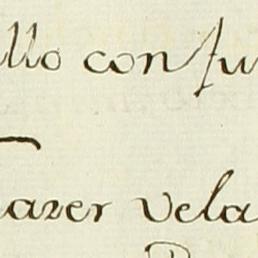 llo con fu
azer vela